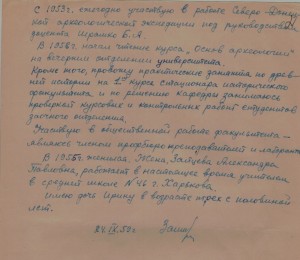 С 1953г. ежегодно участвую в работе Северо-Донец-
кой археологической экспедиции под руководством
доцента Шрамко Б.А.
В 1956г. начал чтение курса „Основ археологии"
на вечернем отделении университета.
Кроме того, провожу практические занятия по древ-
ней истории на 1ом курсе стационара исторического
факультета и по решению кафедры занимаюсь
проверкой курсовых и контрольных работ студентов
заочного отделения.
Участвую в общественной работе факультета —
являюсь членом профбюро преподавателей и лаборантов.
В 1955г. женился. Жена, Александра
Павловна, работает в настоящее время учителем
в средней школе №46 г. Харькова.
Имею дочь Ирину в возрасте трех с половиной
лет.